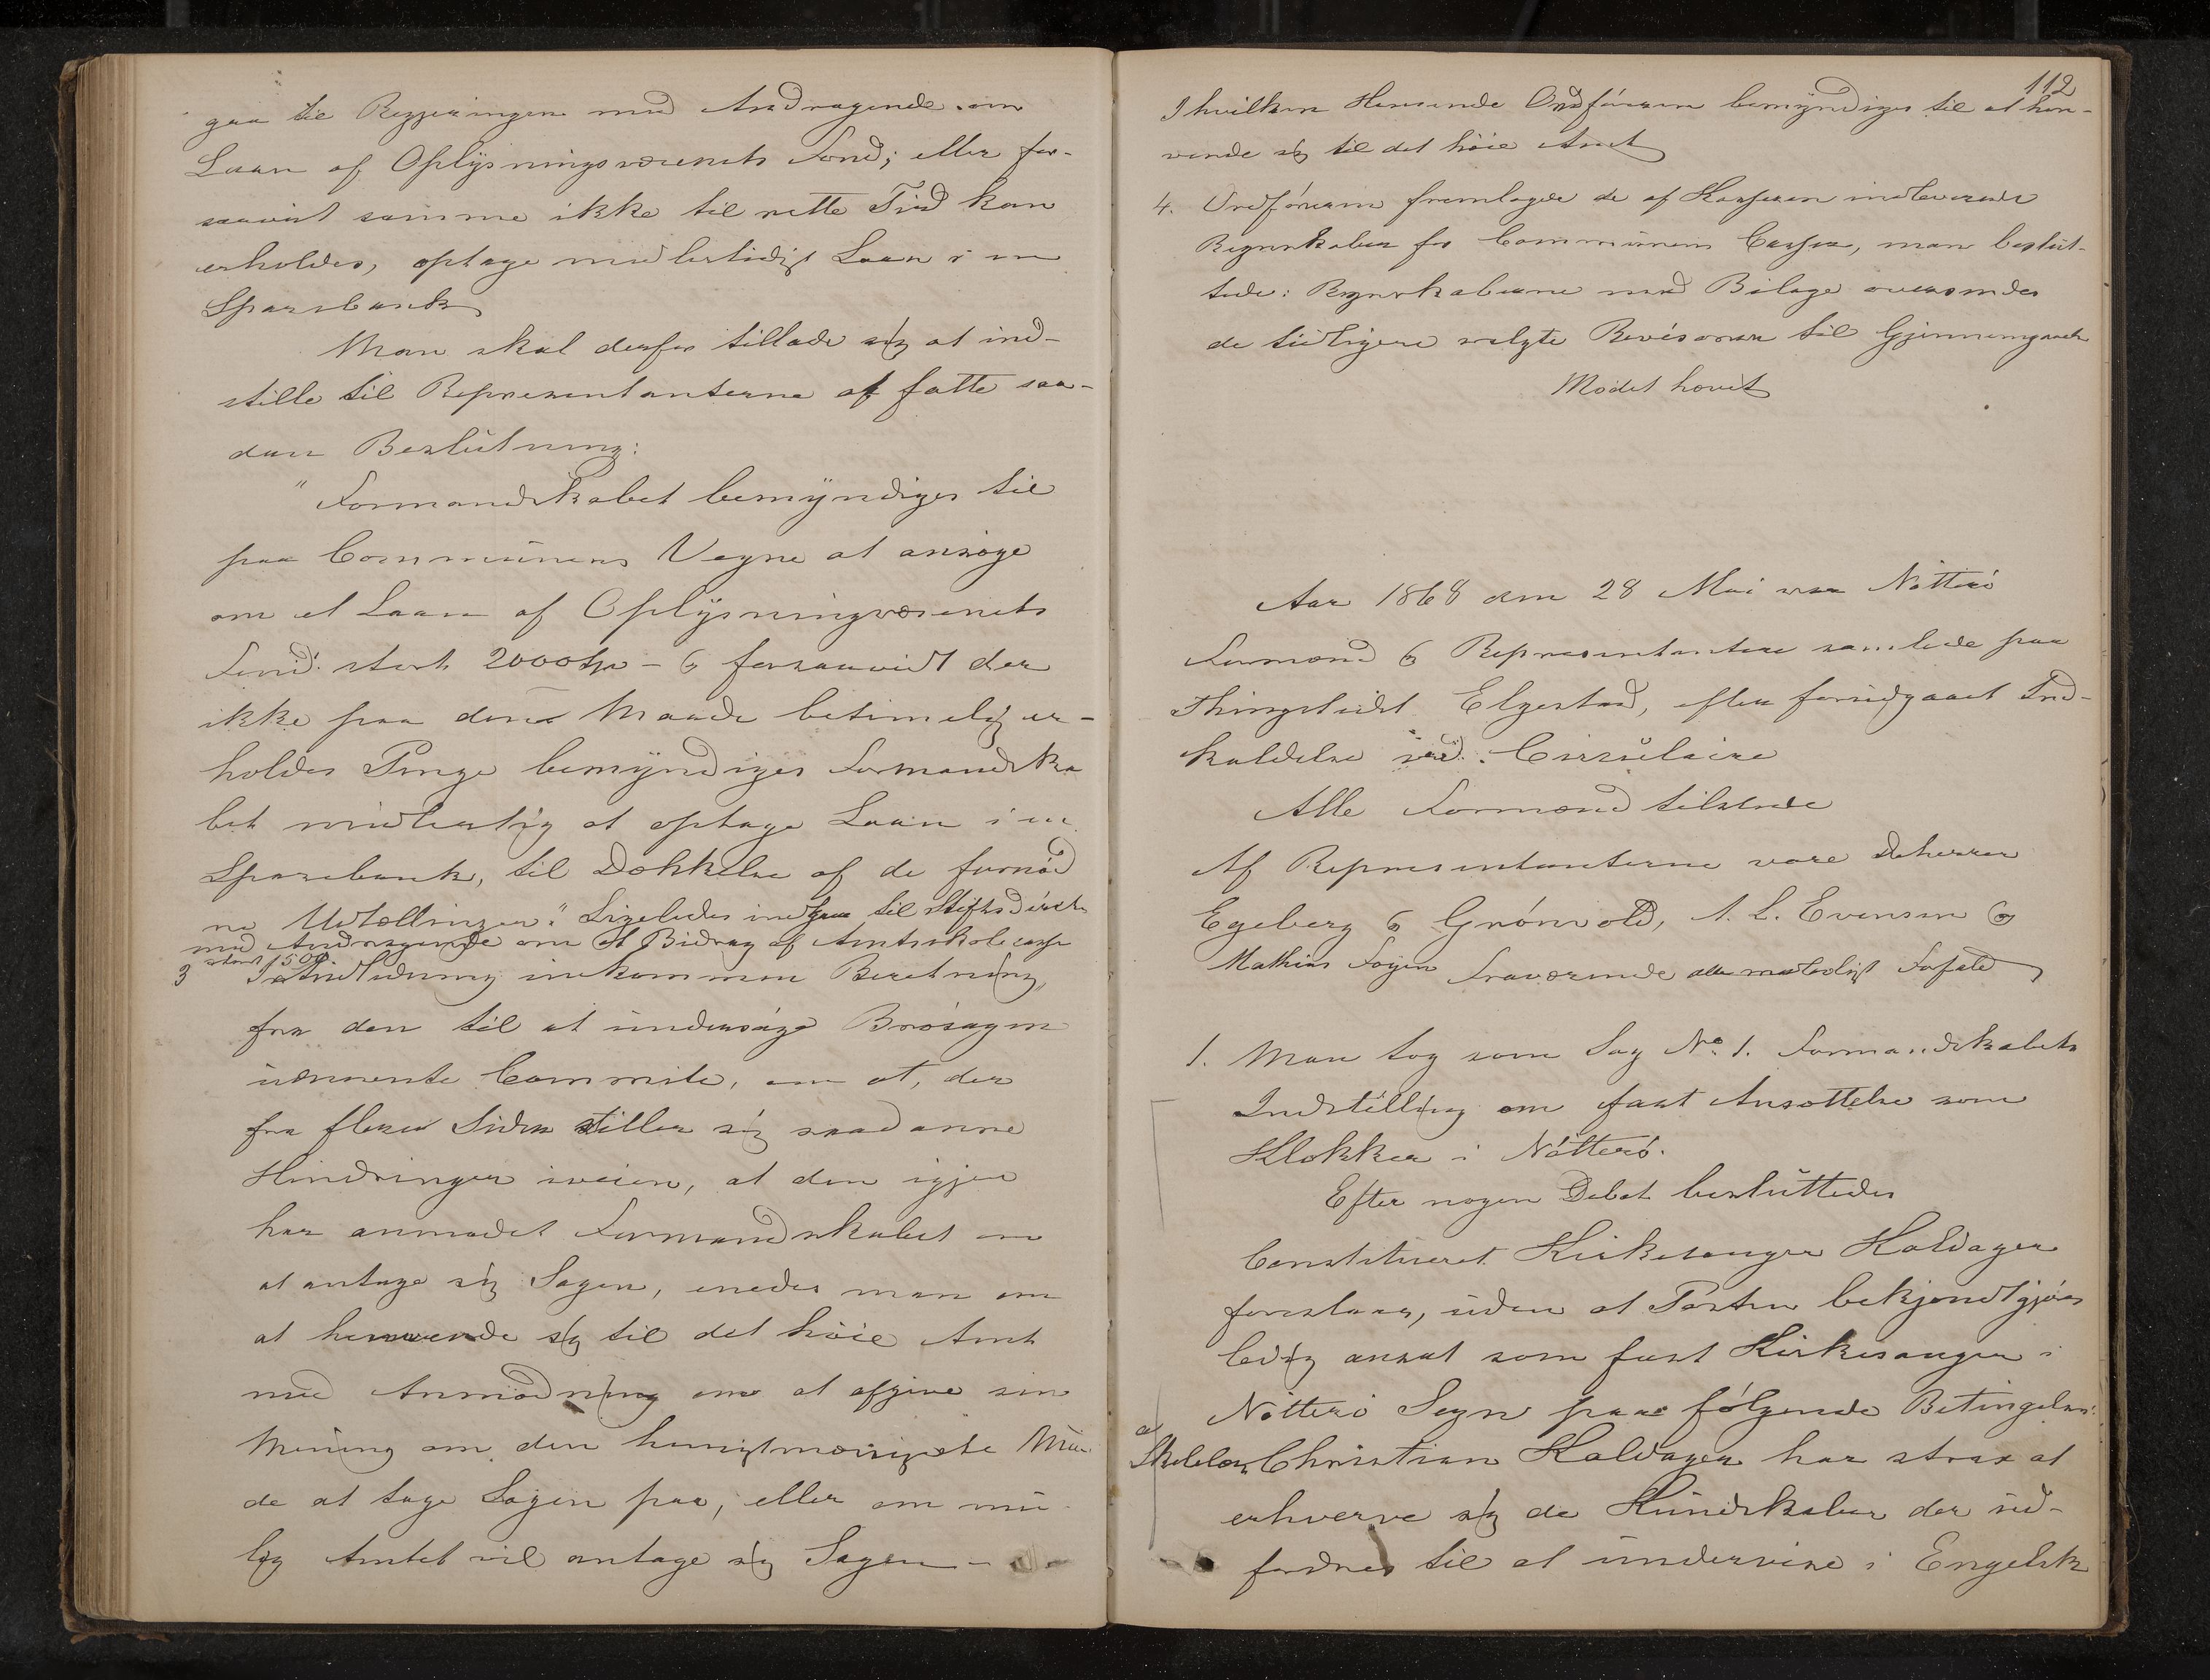 gaa til Regjeringen med Andragende om
Laan af Oplysningsvæsenets Fond; eller for-
saavidt samme ikke til rette Tid kan
erholdes, optage midlertidigt Laan i en
Sparebank
Man skal derfor tillade sig at ind-
stille til Repræsentanterne at fatte saa-
dan Beslutning:
"Formandskabet bemyndiges til
paa Communens Vegne at ansøge
om et Laan af Oplysningvæsenets
Fond stort 2000 Spd – og forsaavidt der
ikke paa denne Maade betimelig er-
holdes Penge bemyndiges Formandska
bet midlertig at optage Laan i en
Sparebank, til Dækkelse af de fornød
ne Udtællinger." Ligeledes indgaa til Stiftsdirect.
med Andragende om et Bidrag af Amtsskolecasse
stort 500
3 I Anledning inkommen Beretning,
fra den til at undersøge Brosagen
udnævnte Commite, om at, der
fra flere Sider stiller sig saadanne
Hindringer iveien, at den igjen
har anmodet Formandskabet om
at antage sig Sagen, enedes man om
at henvende sig til det høie Amt
med Anmodning om at afgive sin
Mening om den hensigtmæssigste Maa
de at tage Sagen paa, eller om mu-
lig Amtet vil antage sig Sagen –
112
I hvilken Henseende Ordføreren bemyndiges til at hen-
vende sig til det høie Amt
4. Ordføreren fremlagde de af Kasseren indleverede
Regnskaber for Communens Casser, man beslut-
tede: Regnskaberne med Bilage oversendes
de tidligere valgte Revisorer til Gjennemgaaelse
Mødet hævet
Aar 1868 den 28 Mai var Nøtterø
Formænd og Repræsentantere samlede paa
Thingstedet Elgestad, efter forudgaaet Ind-
kaldelse ved Circulaire
Alle Formænd tilstede
Af Repræsentanterne vare Dherrer
Egeberg og Grønvold, A. L. Evensen og
Mathias Foyen fraværende alle meldt Forfald
1. Man tog som Sag No. 1. Formandskabets
Indstilling om fast Ansættelse som
Klokker i Nøtterø.
Efter nogen Debat besluttedes
Constitueret Kirkesanger Haldager
foreslaaes, uden at Posten bekjendtgjøres
ledig ansat som fast Kirkesanger i
Nøtterø Sogn paa følgende Betingelser:
a
Skolelær. Christian Haldager har strax at
erhverve sig de Kundskaber der ud-
fordres til at undervise i Engelsk